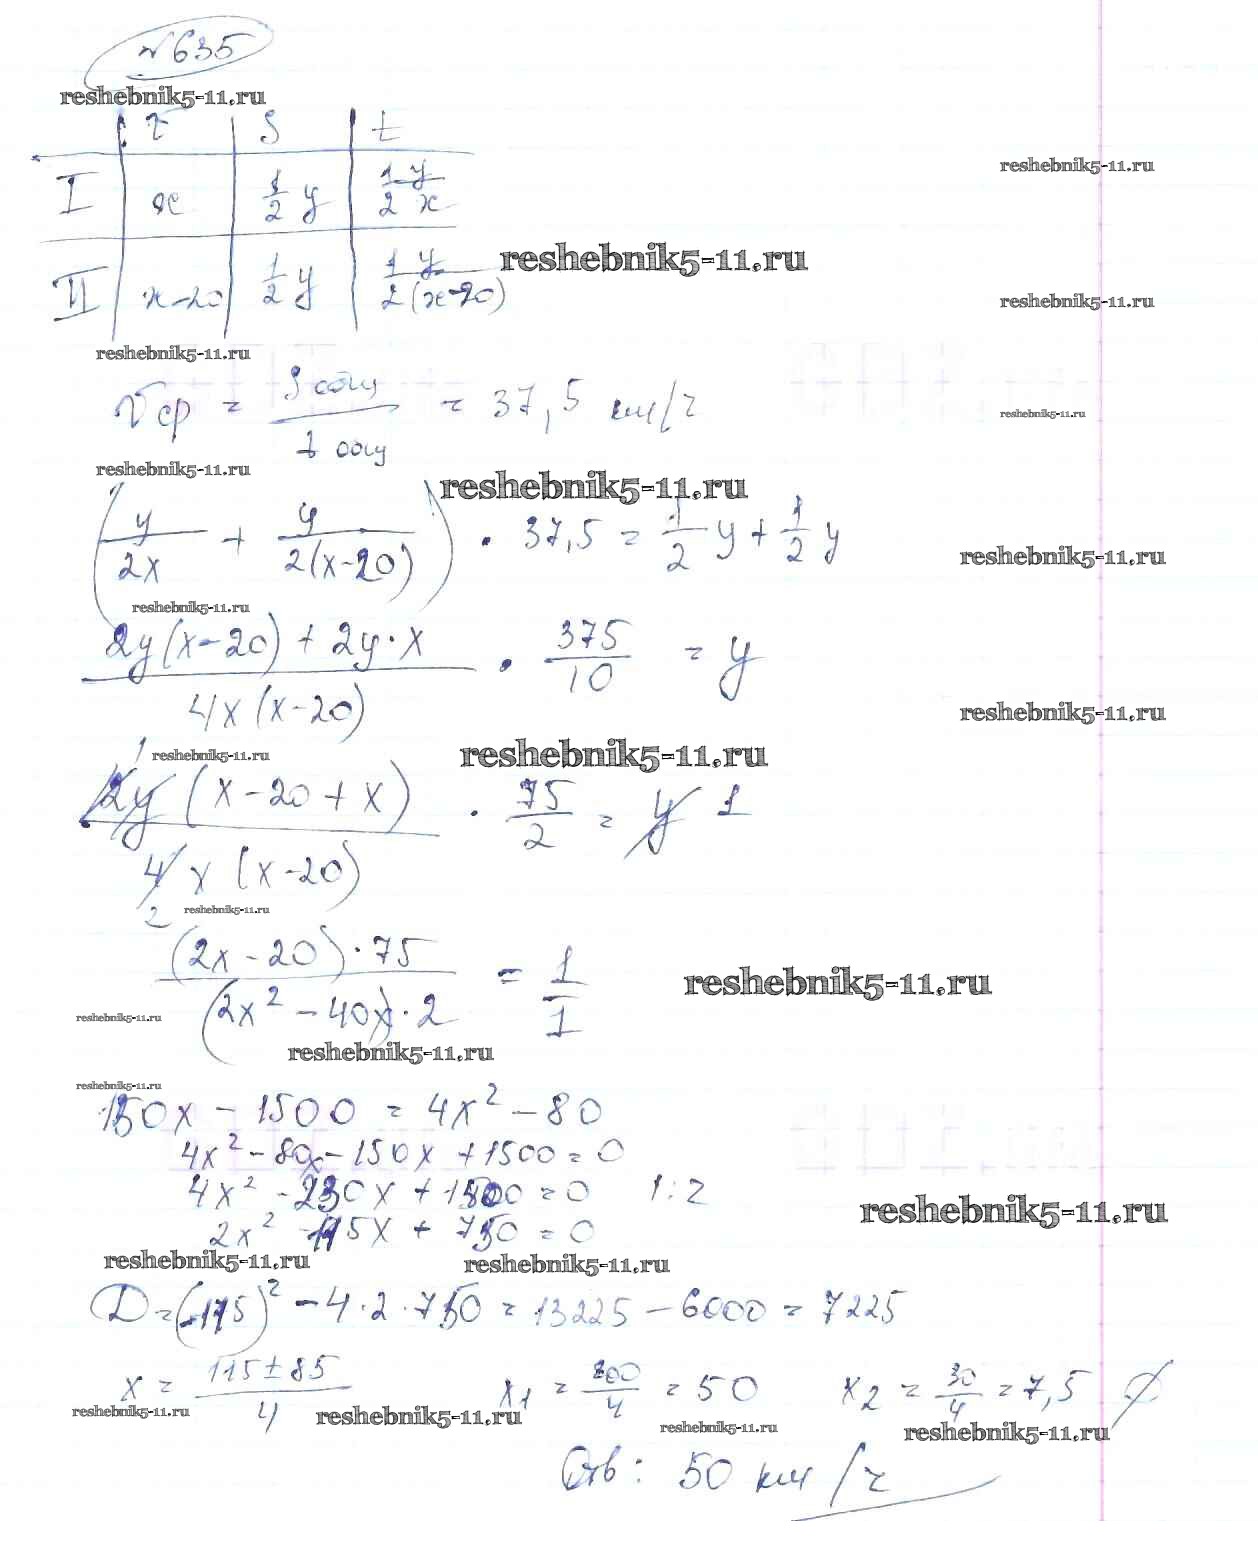 №635
reshebnik5-11.ru
v S t
reshebnik5-11.ru
I x 1/2 y 1y/2x
reshebnik5-11.ru
II x-20 1/2 y 1y/2(x-20)
reshebnik5-11.ru
reshebnik5-11.ru
Vср = S общ / t общ = 37,5 км/ч
reshebnik5-11.ru
reshebnik5-11.ru
reshebnik5-11.ru
(y/2x + y/2(x-20)) · 37,5 = 1/2 y + 1/2 y
reshebnik5-11.ru
reshebnik5-11.ru
2y(x-20) + 2y·x / 4x(x-20) · 375/10 = y
reshebnik5-11.ru
reshebnik5-11.ru
reshebnik5-11.ru
1 2y (x-20+x) / 4 2 x (x-20) · 75/2 = y 1
reshebnik5-11.ru
(2x-20)·75 / (2x²-40x)·2 = 1/1
reshebnik5-11.ru
reshebnik5-11.ru
reshebnik5-11.ru
reshebnik5-11.ru
150x - 1500 = 4x² - 80
4x² - 80x - 150x + 1500 = 0
4x² - 230x + 1500 = 0 |:2
reshebnik5-11.ru
2x² - 115x + 750 = 0
reshebnik5-11.ru
reshebnik5-11.ru
D = (-115)² - 4·2·750 = 13225 - 6000 = 7225
x = 115±85 / 4 x1 = 200/4 = 50 x2 = 30/4 = 7,5 ∅
reshebnik5-11.ru
reshebnik5-11.ru
reshebnik5-11.ru
reshebnik5-11.ru
Отв: 50 км/ч